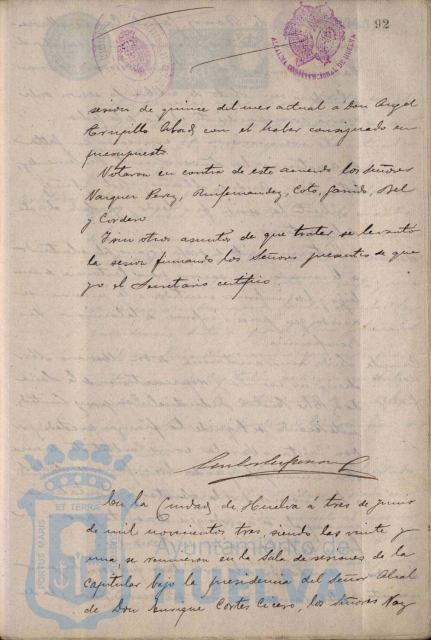 92
ALCALDIA CONSTITUCIONAL DE HUELVA
sesion de quince del mes actual a Don Angel
Trujillo Abad, con el haber consignado en
presupuesto
Votaron en contra de este acuerdo los Señores
Vazquez Perez, Ruifernandez, Coto, Garrido,
y Cordero
Y sin otros asuntos de que tratar se levantó
la sesion firmando los Señores presentes de que
yo el Secretario certifico.
En la Ciudad de Huelva á tres de Junio
de mil novecientos tres, siendo las veinte y
una se reunieron en la Sala de sesiones de la
capitular bajo la presidencia del Señor Alcal
de Don Enrique Cortes Cicero, los Señores Vaz
PORTUS MARIS ET TERRAE
Ayuntamiento de
HUELVA